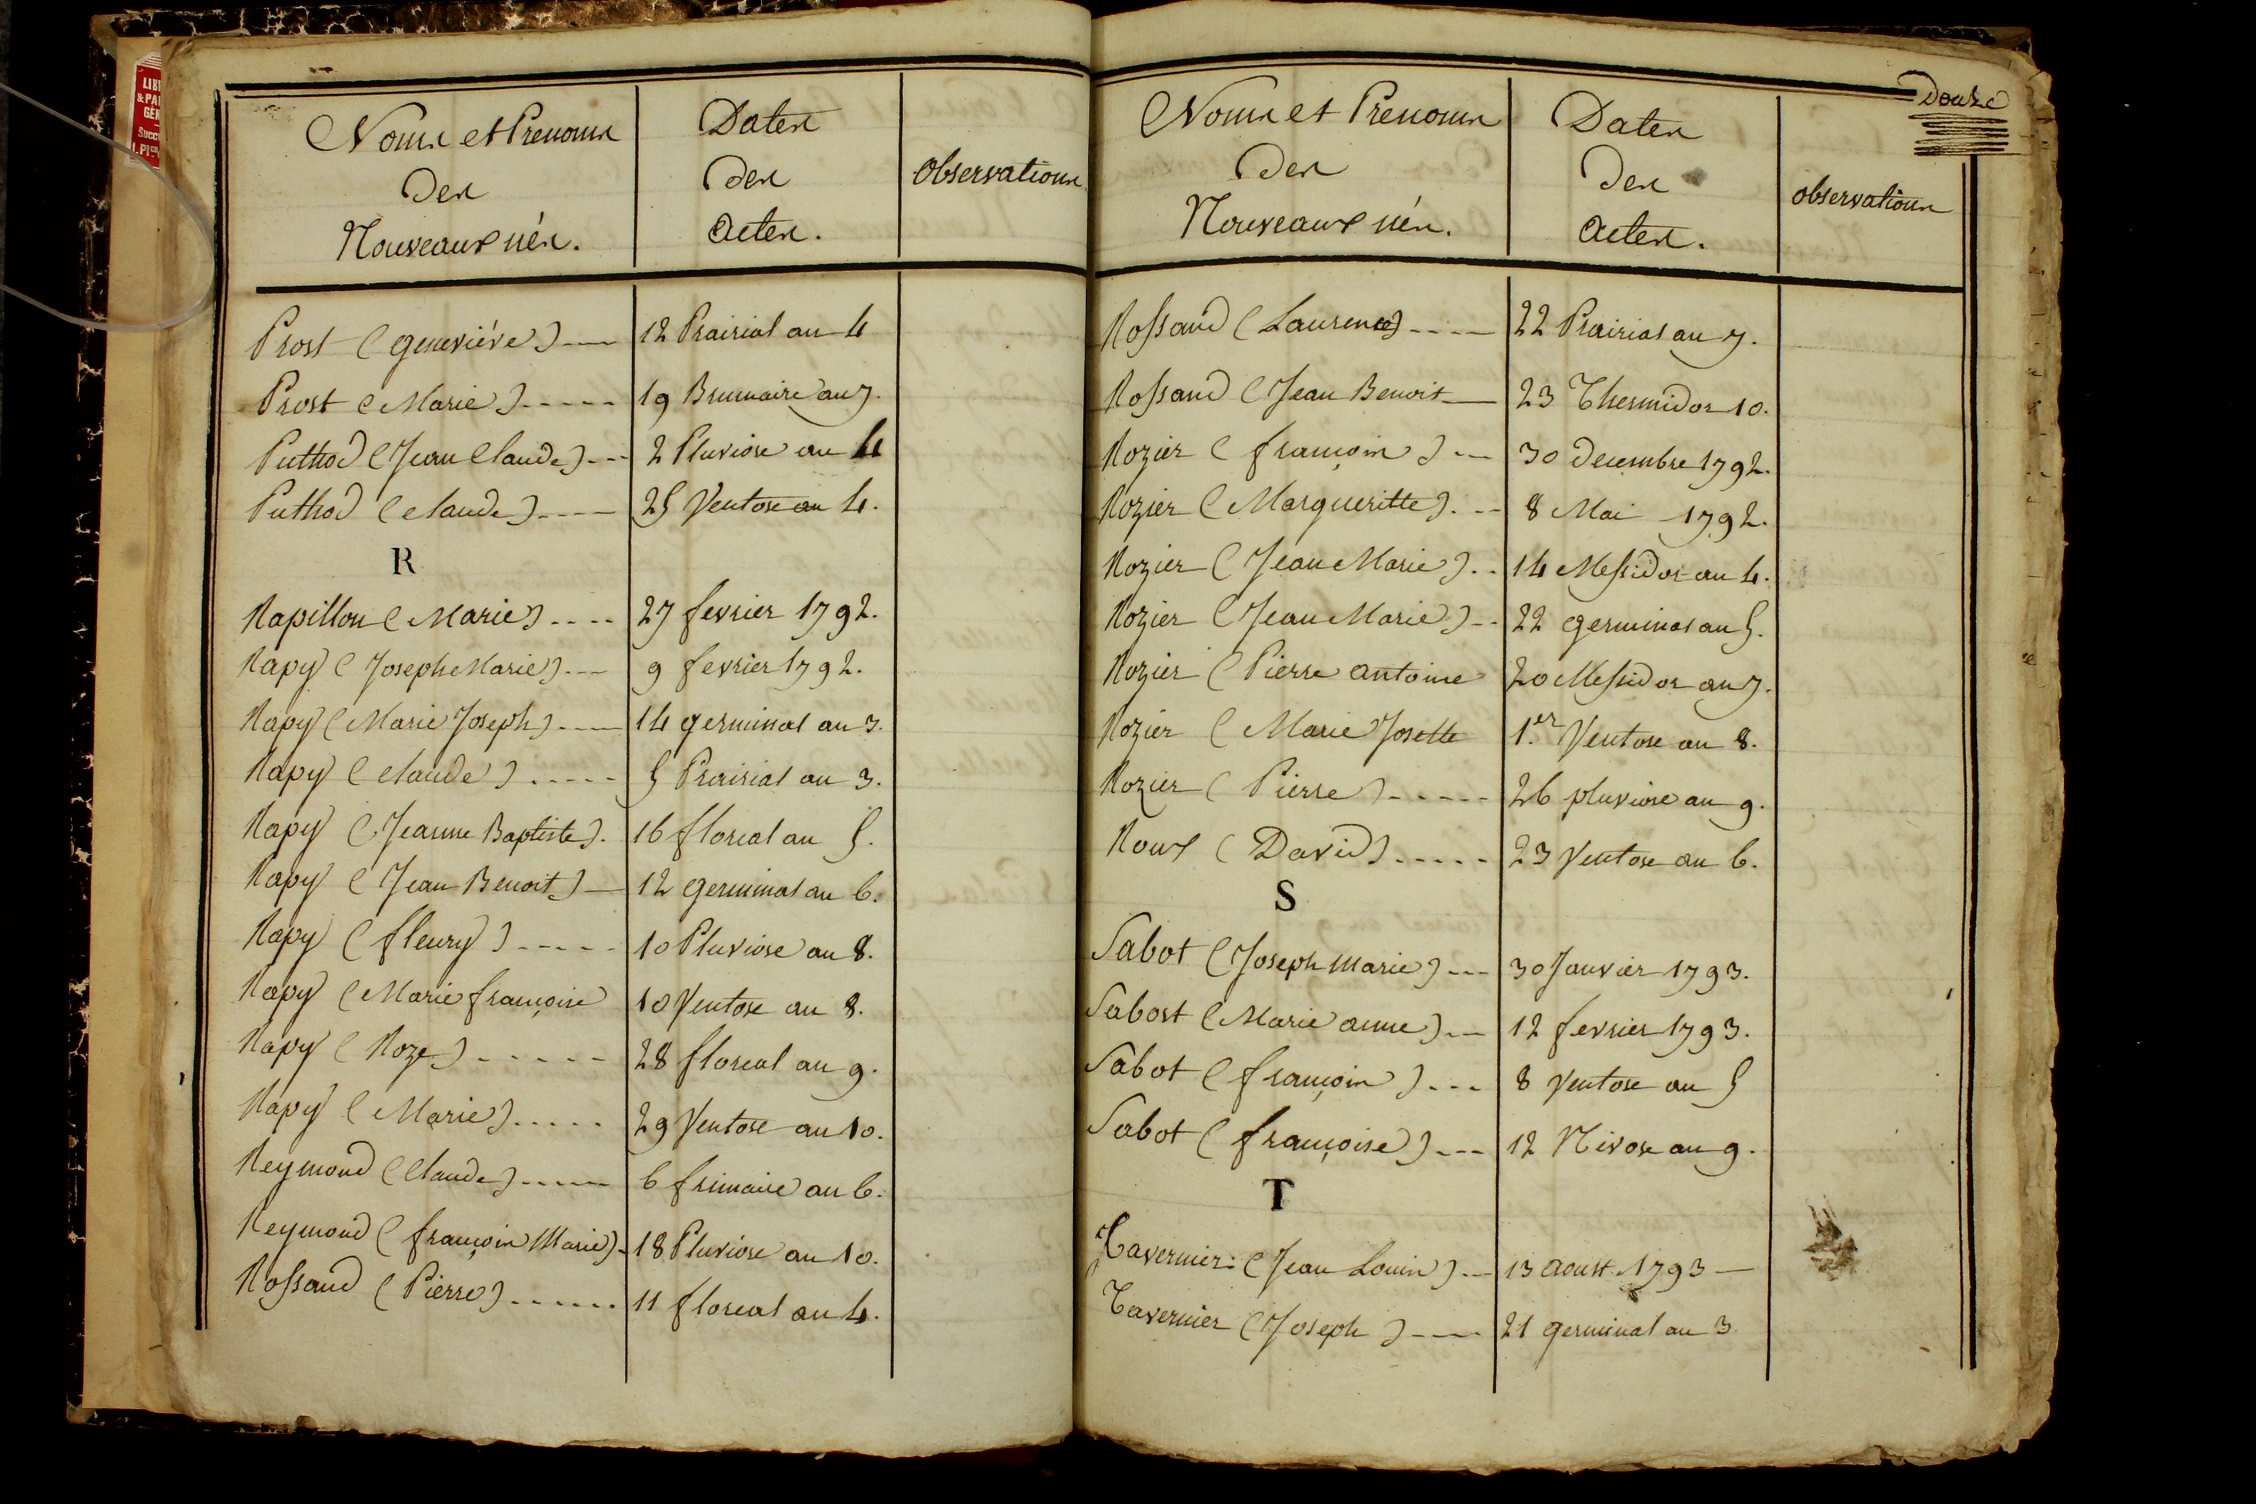 Noms et Prenoms
Des
Nouveaux nés.
Dates
Des
Actes.
Observations
Prost (geneviéve)
12 Prairial an 4
Prost (Marie)
19 Brumaire an 7.
Puthod (Jean Claude)
2 Pluviose an 4
Puthod (Claude)
25 Ventose an 4.
R
Rapillon (Marie)
27 fevrier 1792.
Rapy (Joseph Marie)
9 fevrier 1792.
Rapy (Marie Joseph)
14 germinal an 3.
Rapy (Claude)
5 Prairial an 3.
Rapy (Jeanne Baptiste).
16 floreal an 5.
Rapy (Jean Benoit)
12 germinal an 6.
Rapy (fleury)
10 Pluviose an 8.
Rapy (Marie françoise
10 Ventose an 8.
Rapy (Roze)
28 floreal an 9.
Rapy (Marie)
29 Ventose an 10.
Reymond (Claude)
6 frimaire an 6.
Reymond (françois Marie)
18 Pluviose an 10.
Rossand (Pierre)
11 floreal an 4.
Douze
Noms et Prenoms
Des
Nouveaux nés.
Dates
Des
Actes.
Observations
Rossand (Laurence)
22 Prairial an 7.
Rossand (Jean Benoit
23 Thermidor 10.
Rozier (françois)
30 Decembre 1792.
Rozier (Margueritte).
8 Mai 1792.
Rozier (Jean Marie)
14 Messidor an 4.
Rozier (Jean Marie)
22 germinal an 5.
Rozier (Pierre Antoine
20 Messidor an 7.
Rozier (Marie Josette
1.er Ventose an 8.
Rozier (Pierre)
26 pluviose an 9.
Roux (David)
23 Ventose an 6.
S
Sabot (Joseph Marie)
30 Janvier 1793.
Sabost (Marie anne)
12 fevrier 1793.
Sabot (françois)
8 Ventose an 5
Sabot (françoise)
12 Nivose an 9.
T
Tavernier (Jean Louis)
13 Aoust 1793
Tavernier (Joseph)
21 germinal an 3